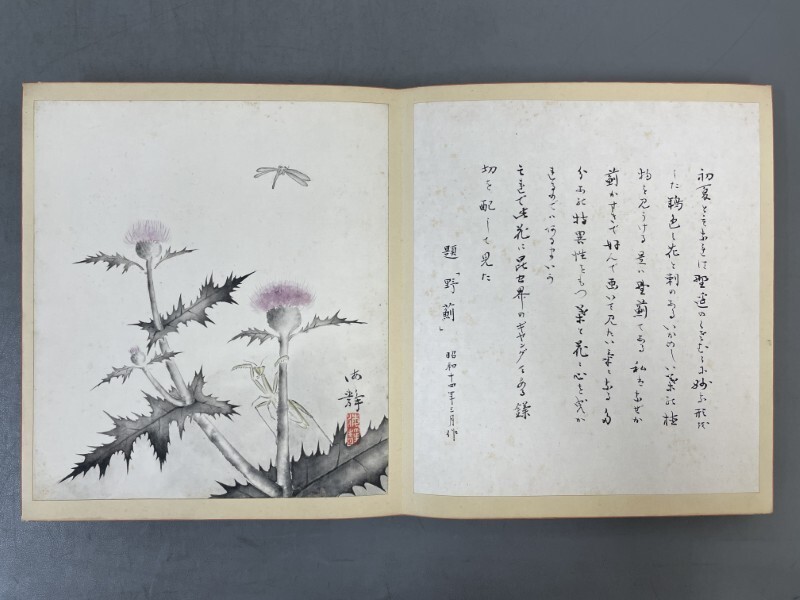 初夏ともなれば野道のくさむらに妙な形を
した鴇色の花と刺のあるいかめしい葉の植
物を見うける 是は野薊である 私はなぜか
薊がすきで好んで画いて見たい気になる 多
分あの特異性をもつ葉と花に心を
であらうか
それで此花に昆虫界のギャングである鎌
切を配して見た
題「野薊」
昭和十四年三月作